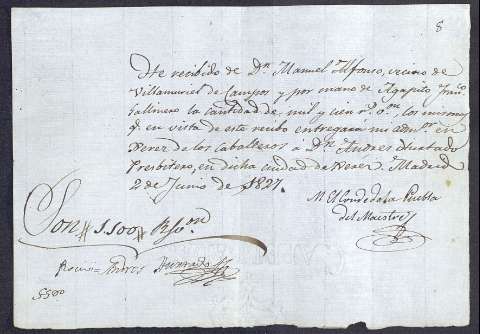 8
He recibido de Dn. Manuel Alfonso, vecino de
Villamuriel de Campos y por mano de Agapito Franco
Gallinero la cantidad de mil y cien rs. vn., los mismos
q. en vista de este recibo entregara mi admor. en
Xerez de los Caballeros a Dn. Andres Hurtado
Presbitero, en dicha ciudad de Xerez. Madrid
2 de Junio de 1827.
M. El Conde de la Puebla
del Maestre
Son # 1.100 # Rs. vn
Andres Hurtado